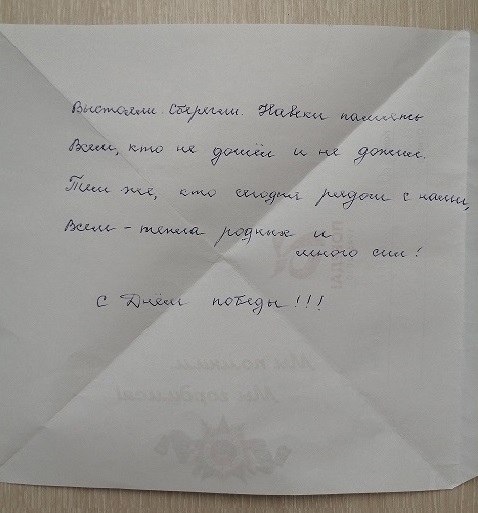 Выстояли. Сберегли. Навеки память
Всем, кто не дошёл и не дожил.
Тем же, кто сегодня рядом с нами,
Всем - тепла родных и
много сил!
С Днём победы!!!
Мы помним.
Мы гордимся!